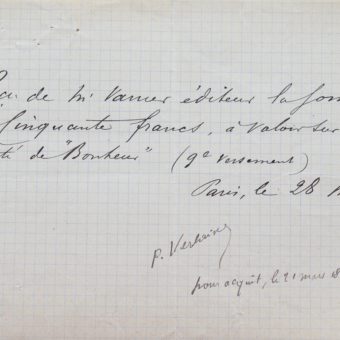 Reçu de Mr Vanier éditeur la som
Cinquante francs, à valoir sur
té de "Bonheur" (9e versement)
Paris, le 28
P. Verlaine
pour acquit, le 21 mars 18